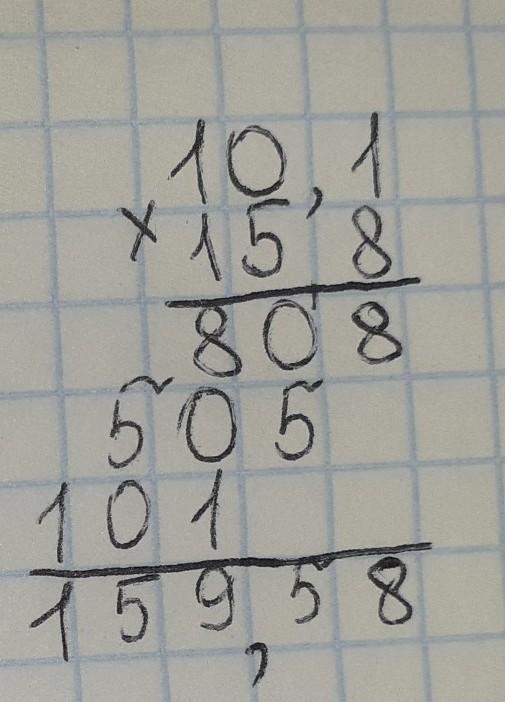 10,1
× 15,8
808
505
101
159,58